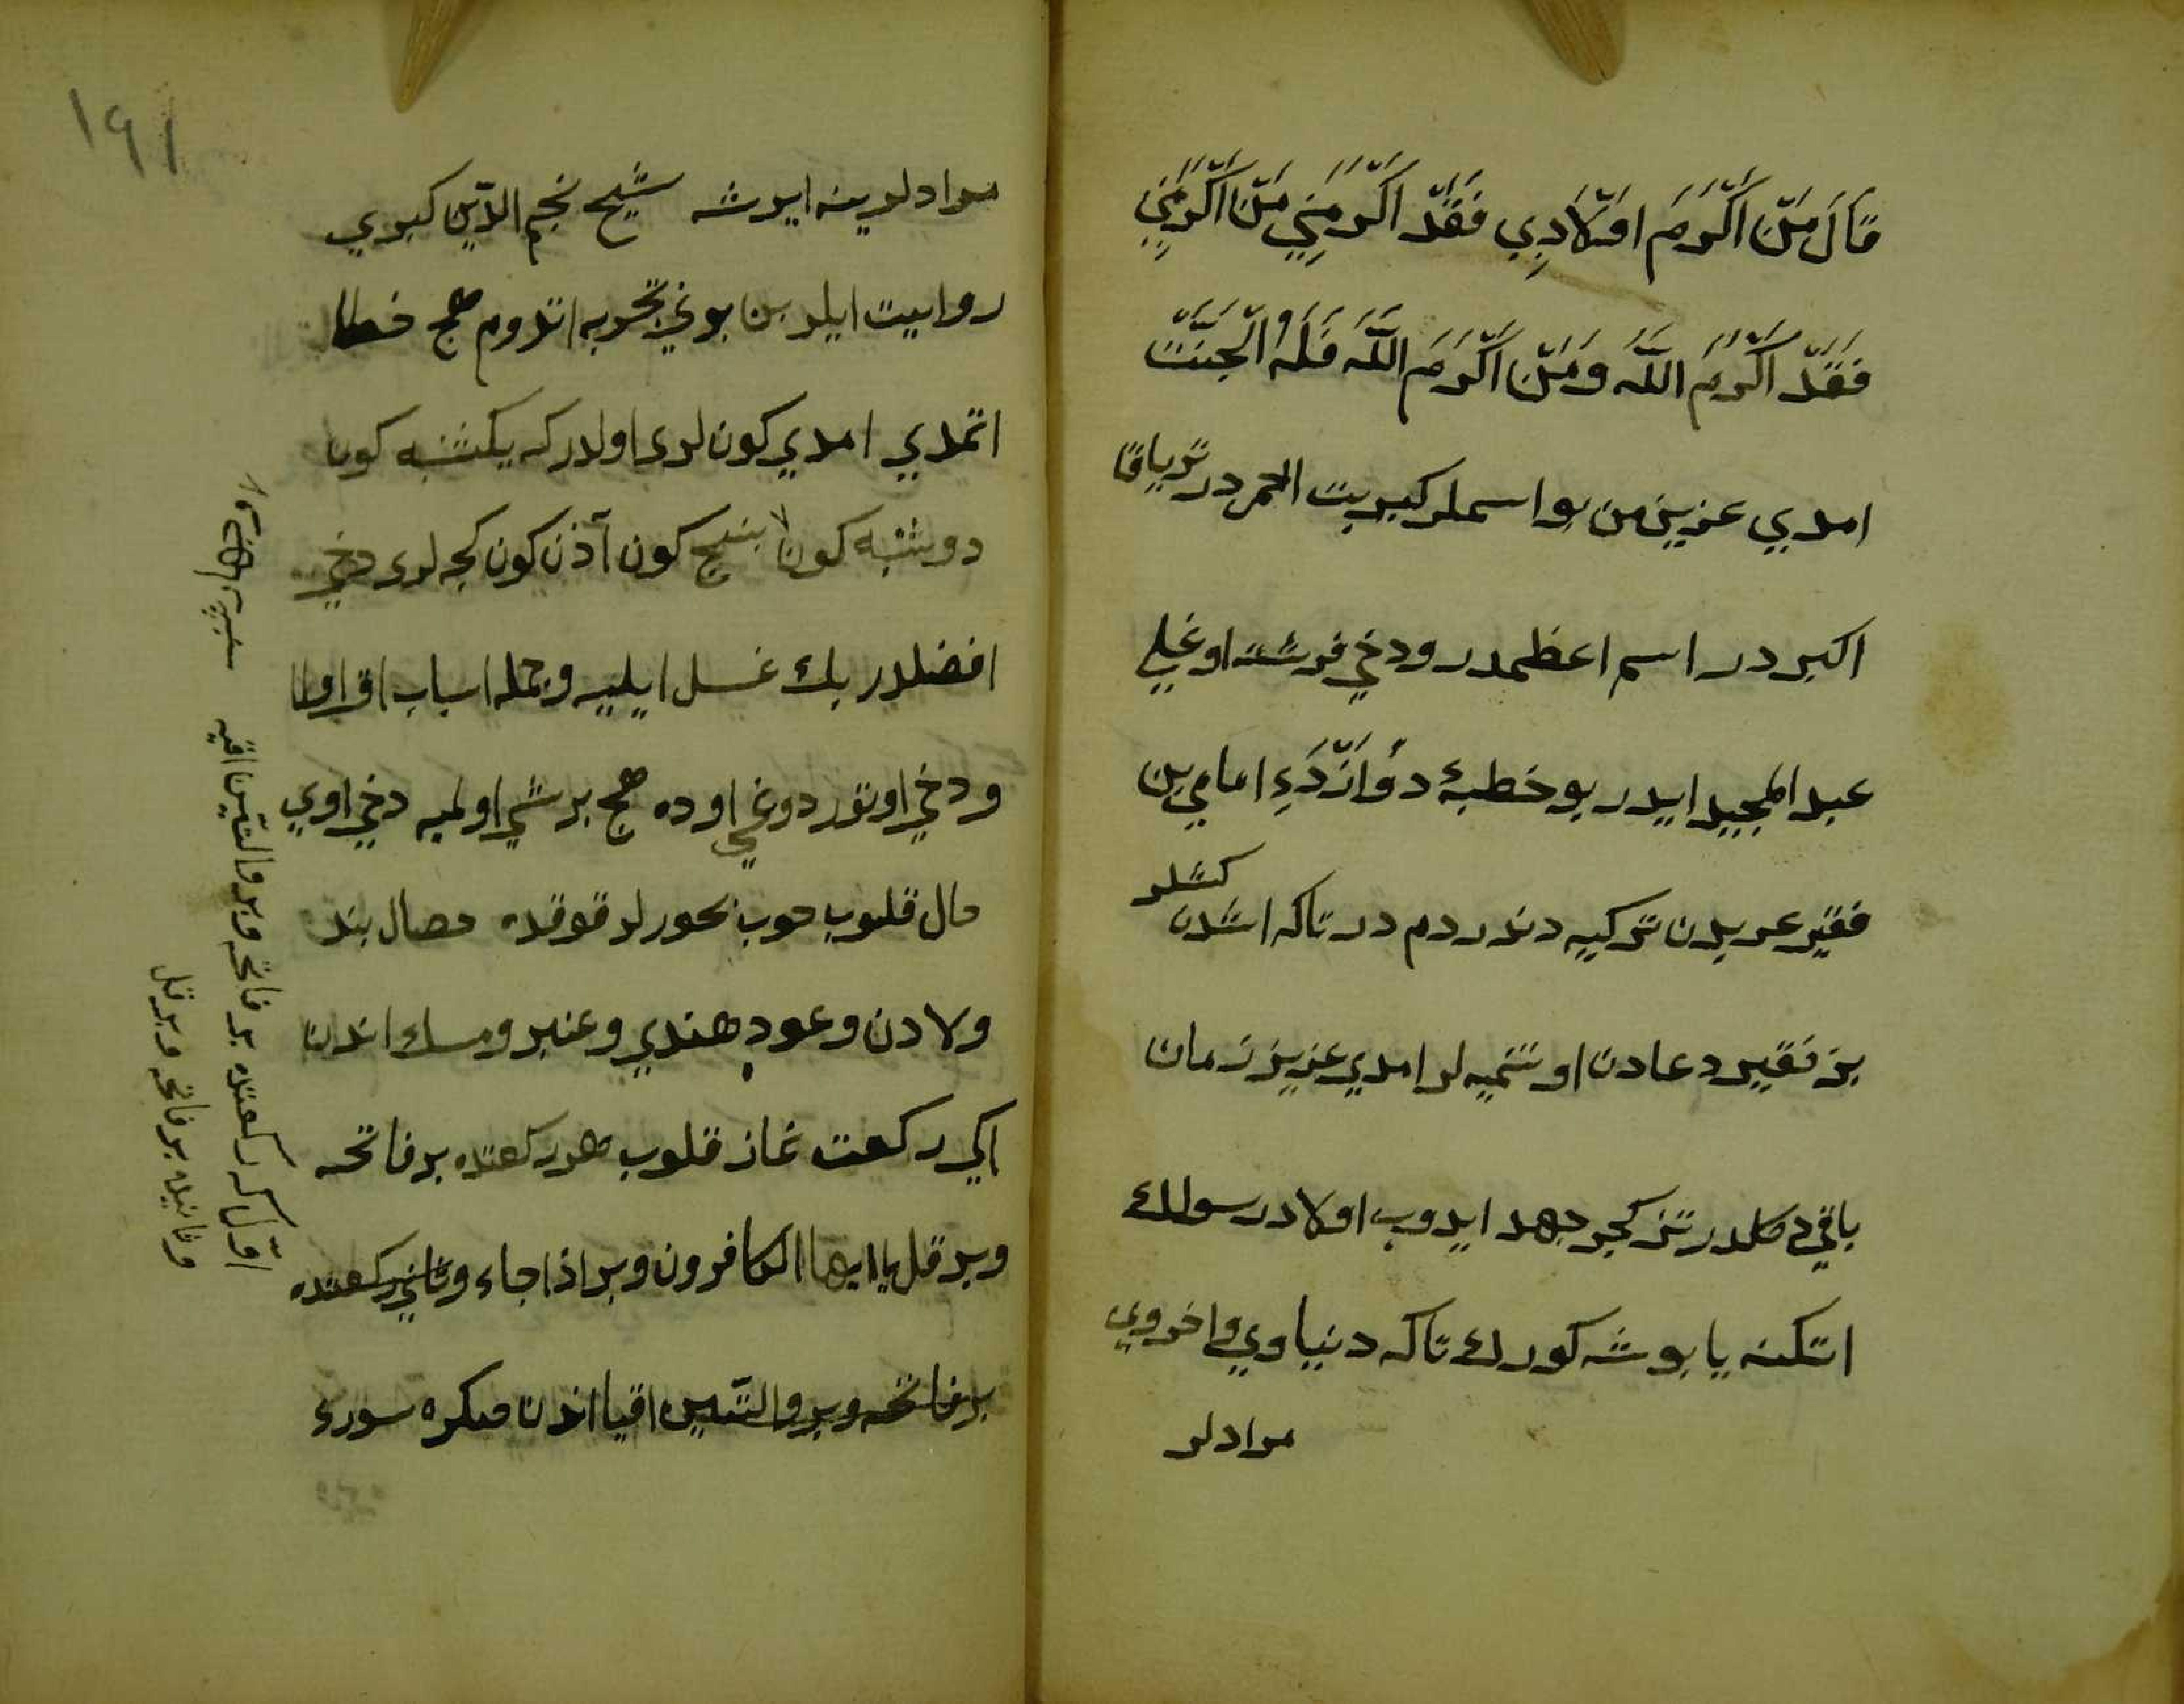 قَالَ مَنْ اَكْرَمَ اَوْلَادِي فَقَدْ اَكْرَمَنِي مَنْ اَكْرَمَنِي
فَقَدْ اَكْرَمَ اللّٰه وَمَنْ اَكْرَمَ اللّٰه فَلَهُ الْجَنَّتْ
امدي عزيز من بو اسملر كبريت احمردر ترياق
اكبردر اسم اعظمدر ودخي فرشته اوغلي
عبد المجيد ايدر بو خطبهٔ دؤازْدَءِ امامي بن
فقير عربدن تركيه دندردم در تاكه اشدن كشلر
بز فقير دعادن اونتميه لر امدي عزيز زمان
باقي دكلدر تز كجر جهد ايدوب اولاد رسولك
اتكنه يابوشه كورك تاكه دنياوي واخروي
مرادلر
١٩١
مرادلرينه ايرشه شيخ نجم الدّين كبري
روايت ايلر بن بوني تجربه اتدوم هيچ خطا
اتمدي امدي كون لرى اولدر كه يكشنبه كون
دوشنبه كون بنج كون آذن كون كجه لرى دخي
افضلدر بك غسل ايليه وجمله اسباب اق اولا
ودخي اوتوردوغي اوده هيچ بر شي اولميه دخي اوي
خال قلوب خوب بخورلر قوقده حصال بند
ولادن وعود هندي وعنبر ومسك اندن
اكي ركعت نماز قلوب هر ركعتده بر فاتحه
وبر قل يا ايها الكافرون وبر اذا جاء وثاني ركعتده
بر فاتحه وبر والتّين اقيا اندن صكره سورۀ
اوّل كي ركعتده بر فاتحه وبر والتّين اقيه
وثانيده بر فاتحه وبر قل